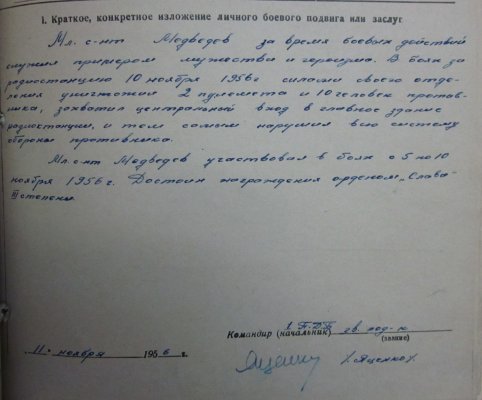 I. Краткое, конкретное изложение личного боевого подвига или заслуг
Мл. с-нт Медведев за время боевых действий
служил примером мужества и героизма. В боях за
радиостанцию 10 ноября 1956г силами своего отде-
ления уничтожил 2 пулемета и 10 человек против-
ника, захватил центральный вход в главное здание
радиостанции, и тем самым нарушил всю систему
обороны противника.
Мл. с-нт Медведев участвовал в боях с 5 по 10
ноября 1956 г. Достоин награждения орденом „Слава"
III степени
1 П.Д.Б.
Командир (начальник) гв. под-к
(звание)
„11" ноября 1956 г.